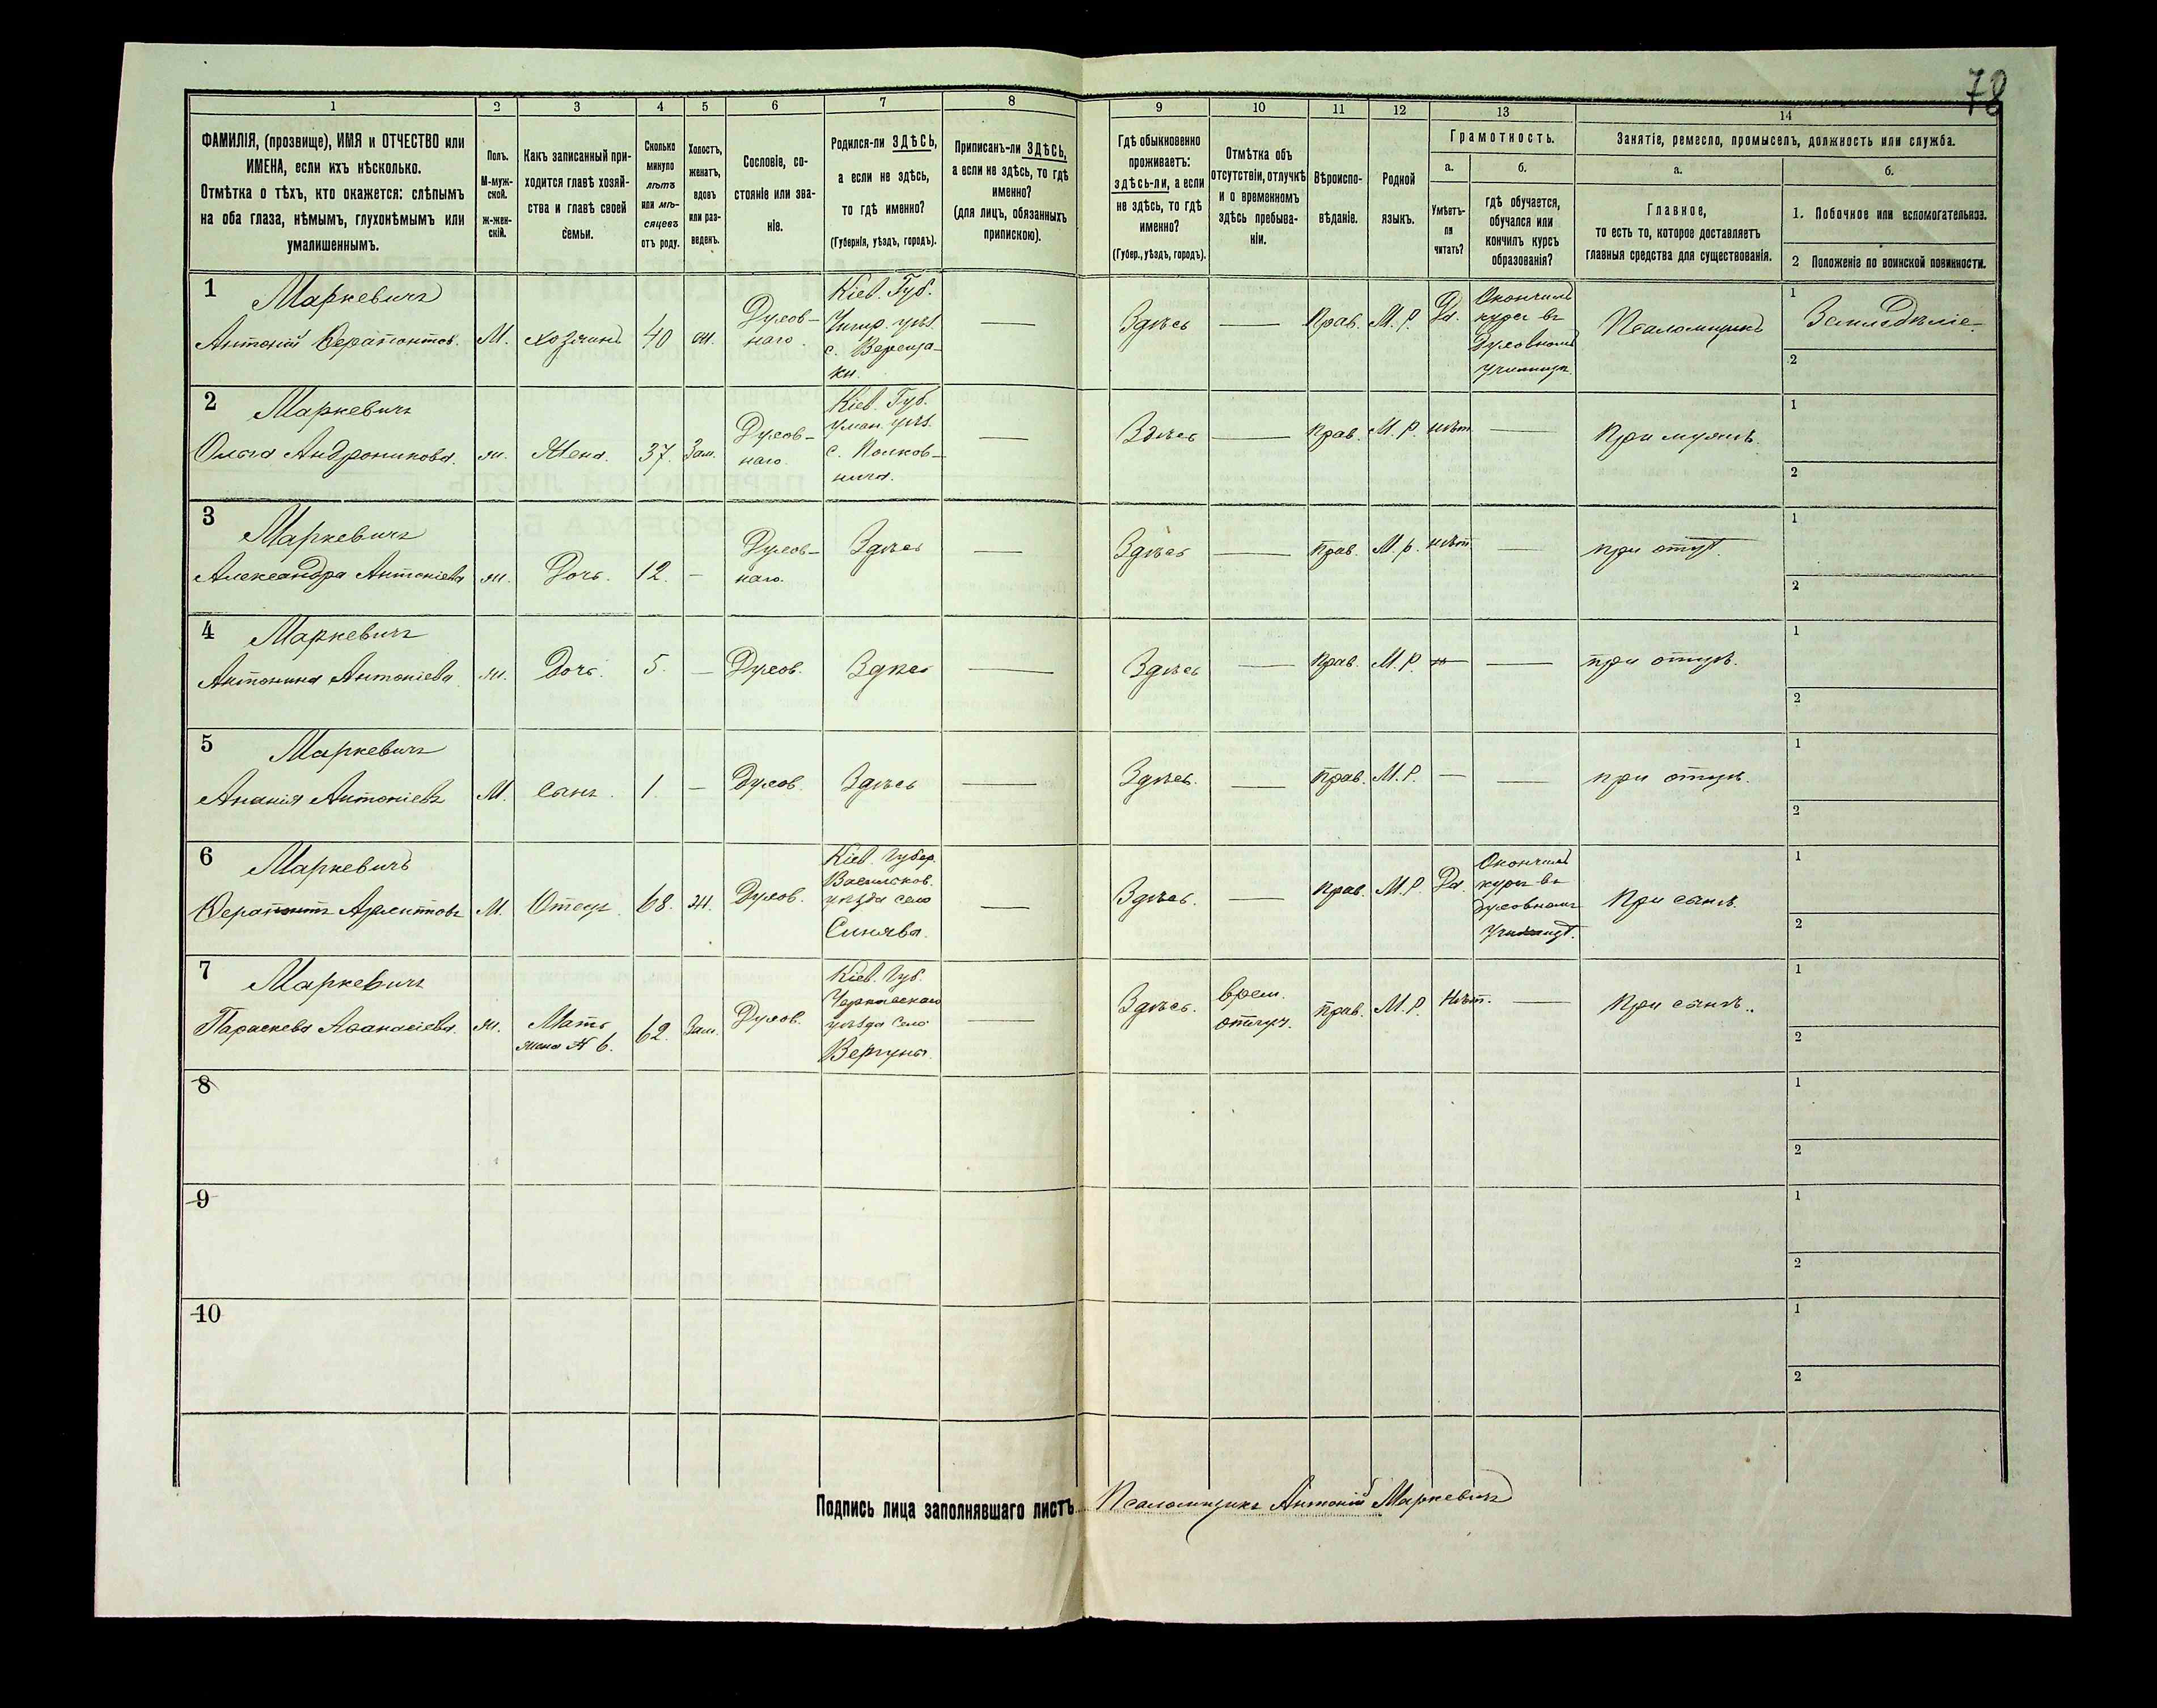 78
1 2 3 4 5 6 7 8 9 10 11 12 13 14
ФАМИЛІЯ, (прозвище), ИМЯ и ОТЧЕСТВО или
ИМЕНА, если ихъ нѣсколько.
Отмѣтка о тѣхъ, кто окажется: слѣпымъ
на оба глаза, нѣмымъ, глухонѣмымъ или
умалишеннымъ.
Полъ.
М-муж-
ской.
ж-жен-
скій.
Какъ записанный при-
ходится главѣ хозяй-
ства и главѣ своей
семьи.
Сколько
минуло
лѣтъ
или мѣ-
сяцевъ
отъ роду.
Холостъ,
женатъ,
вдовъ
или раз-
веденъ.
Сословіе, со-
стояніе или зва-
ніе.
Родился-ли ЗДѢСЬ,
а если не здѣсь,
то гдѣ именно?
(Губернія, уѣздъ, городъ).
Приписанъ-ли ЗДѢСЬ,
а если не здѣсь, то гдѣ
именно?
(для лицъ, обязанныхъ
припискою).
Гдѣ обыкновенно
проживаетъ:
здѣсь-ли, а если
не здѣсь, то гдѣ
именно?
(Губер., уѣздъ, городъ).
Отмѣтка объ
отсутствіи, отлучкѣ
и о временномъ
здѣсь пребыва-
ніи.
Вѣроиспо-
вѣданіе.
Родной
языкъ.
Грамотность.
а.
Умѣетъ-
ли
читать?
б.
гдѣ обучается,
обучался или
кончилъ курсъ
образованія?
Занятіе, ремесло, промыселъ, должность или служба.
а.
Главное,
то есть то, которое доставляетъ
главныя средства для существованія.
б.
1. Побочное или вспомогательное.
2 Положеніе по воинской повинности.
1 Маркевичъ
Антоній Ферапонтов.
М.
хозяинъ
40
ж.
Духов-
наго.
Кіев. Губ.
Чигир. уѣз.
с. Вереща-
ки.
—
Здѣсь
—
Прав.
М. Р.
Да.
Окончилъ
курс въ
Духовномъ
училищѣ.
Псаломщикъ
1 Земледѣліе
2
2 Маркевичъ
Ольга Андроникова.
ж.
Жена.
37.
Зам.
Духов-
наго.
Кіев. Губ.
Уман. уѣз.
с. Полков-
нича.
—
Здѣсь
—
Прав.
М. Р.
нѣт
—
При мужѣ.
1
2
3 Маркевичъ
Александра Антоніева
ж.
Дочь.
12.
—
Духов-
наго.
Здѣсь
—
Здѣсь
—
Прав.
М. р.
нѣт
—
при отцѣ.
1
2
4 Маркевичъ
Антонина Антоніева
ж.
Дочь.
5.
—
Духов.
Здѣсь
—
Здѣсь
—
Прав.
М. Р.
—
при отцѣ.
1
2
5 Маркевичъ
Ананія Антоніевъ
М.
сынъ.
1.
—
Духов.
Здѣсь
—
Здѣсь.
—
Прав.
М. Р.
—
—
при отцѣ.
1
2
6 Маркевичъ
М.
Отецъ.
68.
ж.
Духов.
Кіев. Губер.
Васильков.
уѣзда село
Синява.
—
Здѣсь.
—
Прав.
М. Р.
Да.
Окончилъ
курсъ въ
духовномъ
училищѣ.
При сынѣ.
1
2
7 Маркевичъ
Параскева Афанасіева.
ж.
Мать
жена № 6.
62.
Зам.
Духов.
Кіев. Губ.
Черкасскаго
уѣзда село
Вергуны.
—
Здѣсь.
врем.
отлуч.
Прав.
М. Р.
Нѣт.
—
При сынѣ.
1
2
8
1
2
9
1
2
10
1
2
Подпись лица заполнявшаго листъ Псаломщикъ Антоній Маркевичъ